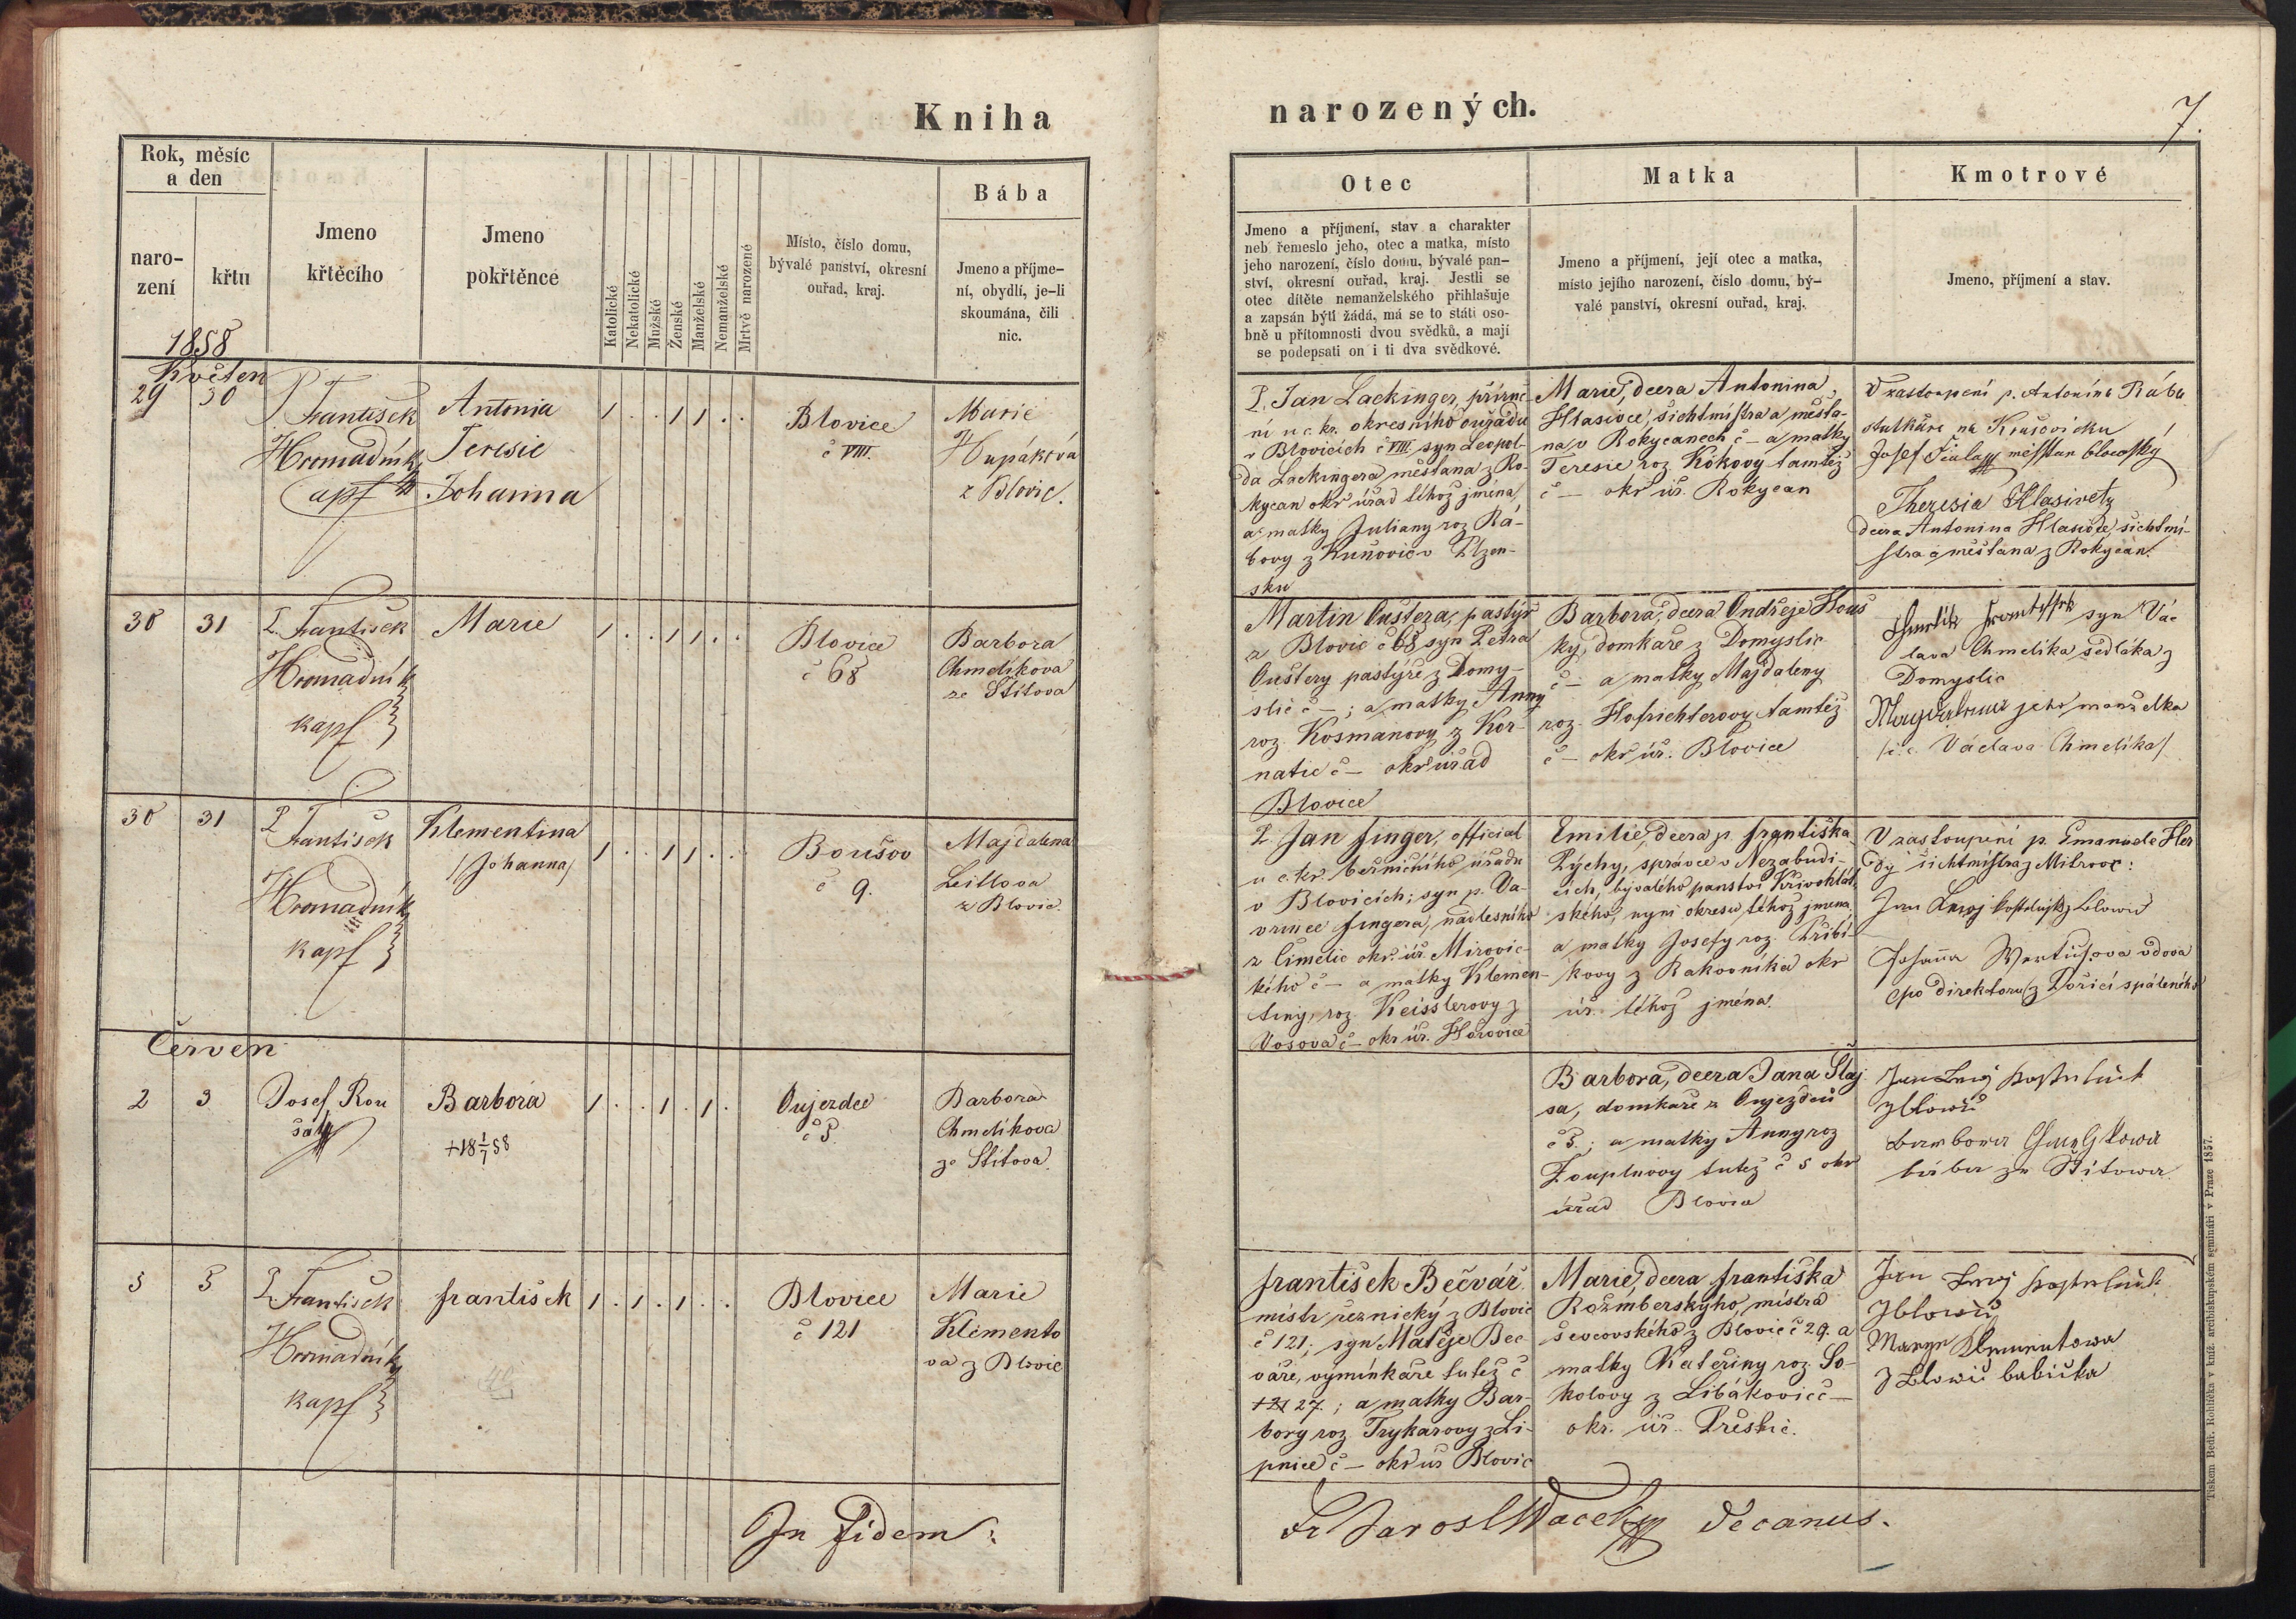 Kniha
narozených.
7.
Rok, měsíc
a den
naro-
zení
křtu
Jmeno
křtěcího
Jmeno
pokřtěnce
Katolické
Nekatolické
Mužské
Ženské
Manželské
Nemanželské
Mrtvě narozené
Místo, číslo domu,
bývalé panství, okresní
ouřad, kraj.
Bába
Jmeno a příjme-
ní, obydlí, je-li
skoumána, čili
nic.
Otec
Jmeno a příjmení, stav a charakter
neb řemeslo jeho, otec a matka, místo
jeho narození, číslo domu, bývalé pan-
ství, okresní ouřad, kraj. Jestli se
otec dítěte nemanželského přihlašuje
a zapsán býti žádá, má se to státi oso-
bně u přítomnosti dvou svědků, a mají
se podepsati on i ti dva svědkové.
Matka
Jmeno a příjmení, její otec a matka,
místo jejího narození, číslo domu, bý-
valé panství, okresní ouřad, kraj.
Kmotrové
Jmeno, příjmení a stav.
1858
Květen
29 30
P. František
Hromadník
Antonia
Teresie
Johanna
1 . . 1 1 . .
Blovice
č VIII.
Marie
Hupáková
z Blovic.
P. Jan Lackinger,
ní u c. kr. okresního ouřadu
v Blovicích č VIII. syn Leopol-
da Lackingera měšťana z Ro-
kycan okr úřad téhož jména,
a matky Juliany roz Rá-
bovy z Kunovic v Plzen-
sku
Marie, dcera Antonina
Hlasivce, šichtmistra a měšťa-
na v Rokycanech č – a matky
Teresie roz. Kókovy tamtéž
č – okr úř. Rokycan
V zastoupení p. Antonína Rába
Josef Fiala měšťan blovický
Theresia Hlasivetz
dcera Antonina Hlasivce, šichtmi-
stra a měšťana z Rokycan.
30 31
P. František
Hromadník
kapl
Marie
1 . . 1 1 . .
Blovice
č 68
Barbora
Chmelíkova
ze Štítova
Martin Oustera, pastýř
z Blovic č 68 syn Petra
Oustery pastýře z Domy-
slic č –; a matky Anny
roz. Kosmanovy z Kor-
natic č – okr úřad
Blovice
Barbora, dcera Ondřeje Hous
ky, domkáře z Domyslic
č – a matky Majdaleny
roz. Hofrichterovy tamtéž
č – okr úř. Blovice
Chmelík František syn Vá-
clava Chmelíka sedláka z
Domyslic
Magdalena jeho manželka
/: c. Václava Chmelíka/
30 31
P. František
Hromadník
kapl
Klementina
/Johanna/
1 . . 1 1 . .
Boušov
č 9.
Majdalena
z Blovic.
P. Jan Finger, official
u c. kr. berničního úřadu
v Blovicích; syn p. Va-
vřince Fingera, nadlesního
z Čimelic okr. úř. Mirovic-
kého č – a matky Klemen-
tiny, roz. Keisslerovy z
Vosova č – okr úř. Hořovice
Emilie, dcera p. Františka
Pýchy, správce v Nezabudi-
cích, bývalého panství Křivoklát-
ského, nyní okresu téhož jmena
a matky Josefy roz. Přibí-
kovy z Rakovníka okr
úř. téhož jména.
V zastoupení p. Emanuele Her
dy šichtmistra z Mitrovic:
Johanna Wertušova vdova
/po direktoru/ z Poříčí spáleného
Červen
2 3
Josef Rou
šal
Barbora
+18 1/7 58
1 . . 1 . 1 .
Oujezdec
č 5.
Barbora
Chmelíkova
ze Štítova.
Barbora, dcera Jana Šlaj
sa, domkáře z Oujezdce
č 5.; a matky Anny roz
Zouplnovy tutéž č 5 okr
úřad Blovice
z Blowic
Barbora Chmelikowa
bába ze Štítowa
3 5
P. František
Hromadník
kapl
František
1 . 1 . 1 . .
Blovice
č 121
Marie
Klimento
va z Blovic
František Bečvář
mistr řeznický z Blovic
č 121; syn Matěje Beč
váře, vymínkáře tutéž č
121 27.; a matky Bar-
bory roz. Trykarovy z Li-
pnice č – okr úř Blovic
Marie, dcera Františka
Rožmberskýho, mistra
ševcovského z Blovic č 29. a
matky Kateřiny roz. So-
kolovy z Libákovic č –
okr. úř. Přeštic.
z Blowic
Marye Klimentowa
z Blowic babička
In fidem:
Decanus.
Tiskem Bedř. Rohlíčka v kníž. arcibiskupském semináři v Praze 1857.